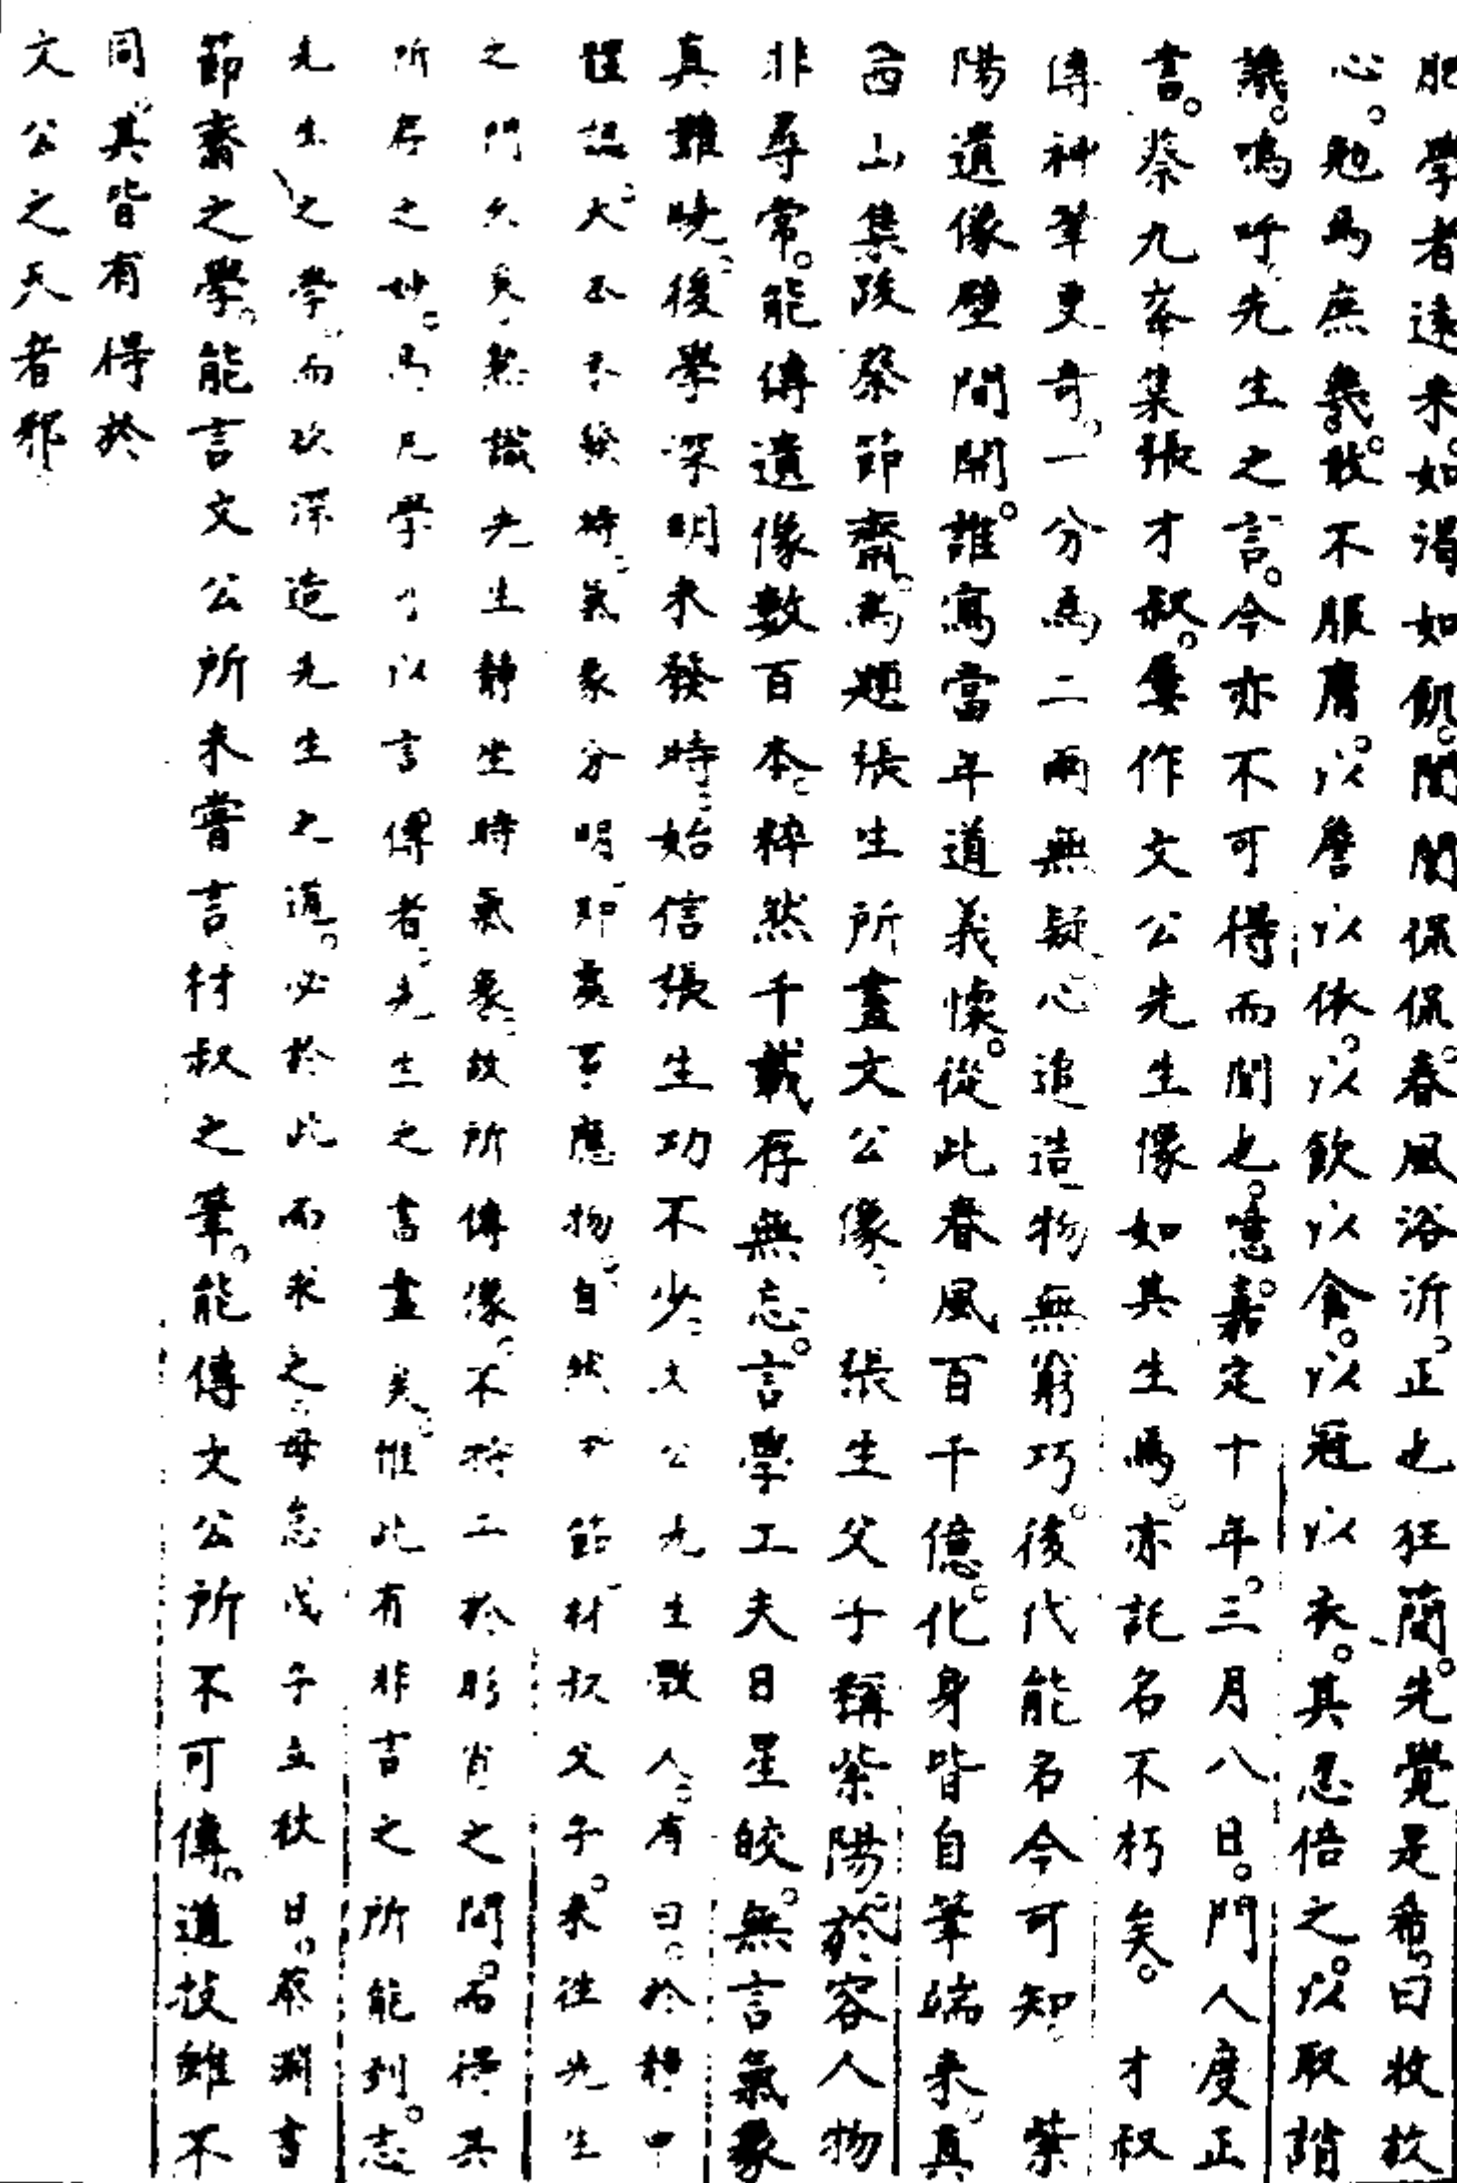 肥學者遠来如渇如飢誾誾侃侃春風浴沂正也狂簡先覺是希曰收放
心勉焉庶幾敢不服膺以詹以依以飲以食以冠以衣其忍倍之以取誚
譏嗚呼先生之言今亦不可得而聞也噫嘉定十年三月八日門人度正
書蔡九峯集張才叔屢作文公先生像如其生焉亦託名不朽矣 才叔
傳神筆更奇一分爲二兩無疑心追造物無窮巧後代能名今可知 紫
陽遺像壁間開誰寫當年道義懐從此春風百千億化身皆自筆端来真
西山集跋蔡節齋爲題張生所畫文公像 張生父子稱紫陽於容人物
非尋常能傳遺像數百本粹然千載存無忘言學工夫日星皎無言氣象
真難曉後學深明未發時始信張生功不少文公先生敎人有曰於靜中
體認大本未發時氣象分明即處事應物自然中節材叔父子来往先生
之門久矣熟識先生靜坐時氣象故所傳像不特工於形肖之間而得其
所存之妙焉凡學可以言傳者先生之書盡矣惟此有非言之所能到志
先生之學而欲深造先生之道必於此而求之毋怠戊子立秋日蔡淵書
節齋之學能言文公所未嘗言材叔之筆能傳文公所不可傳道技雖不
同其皆有得於
文公之天者邪